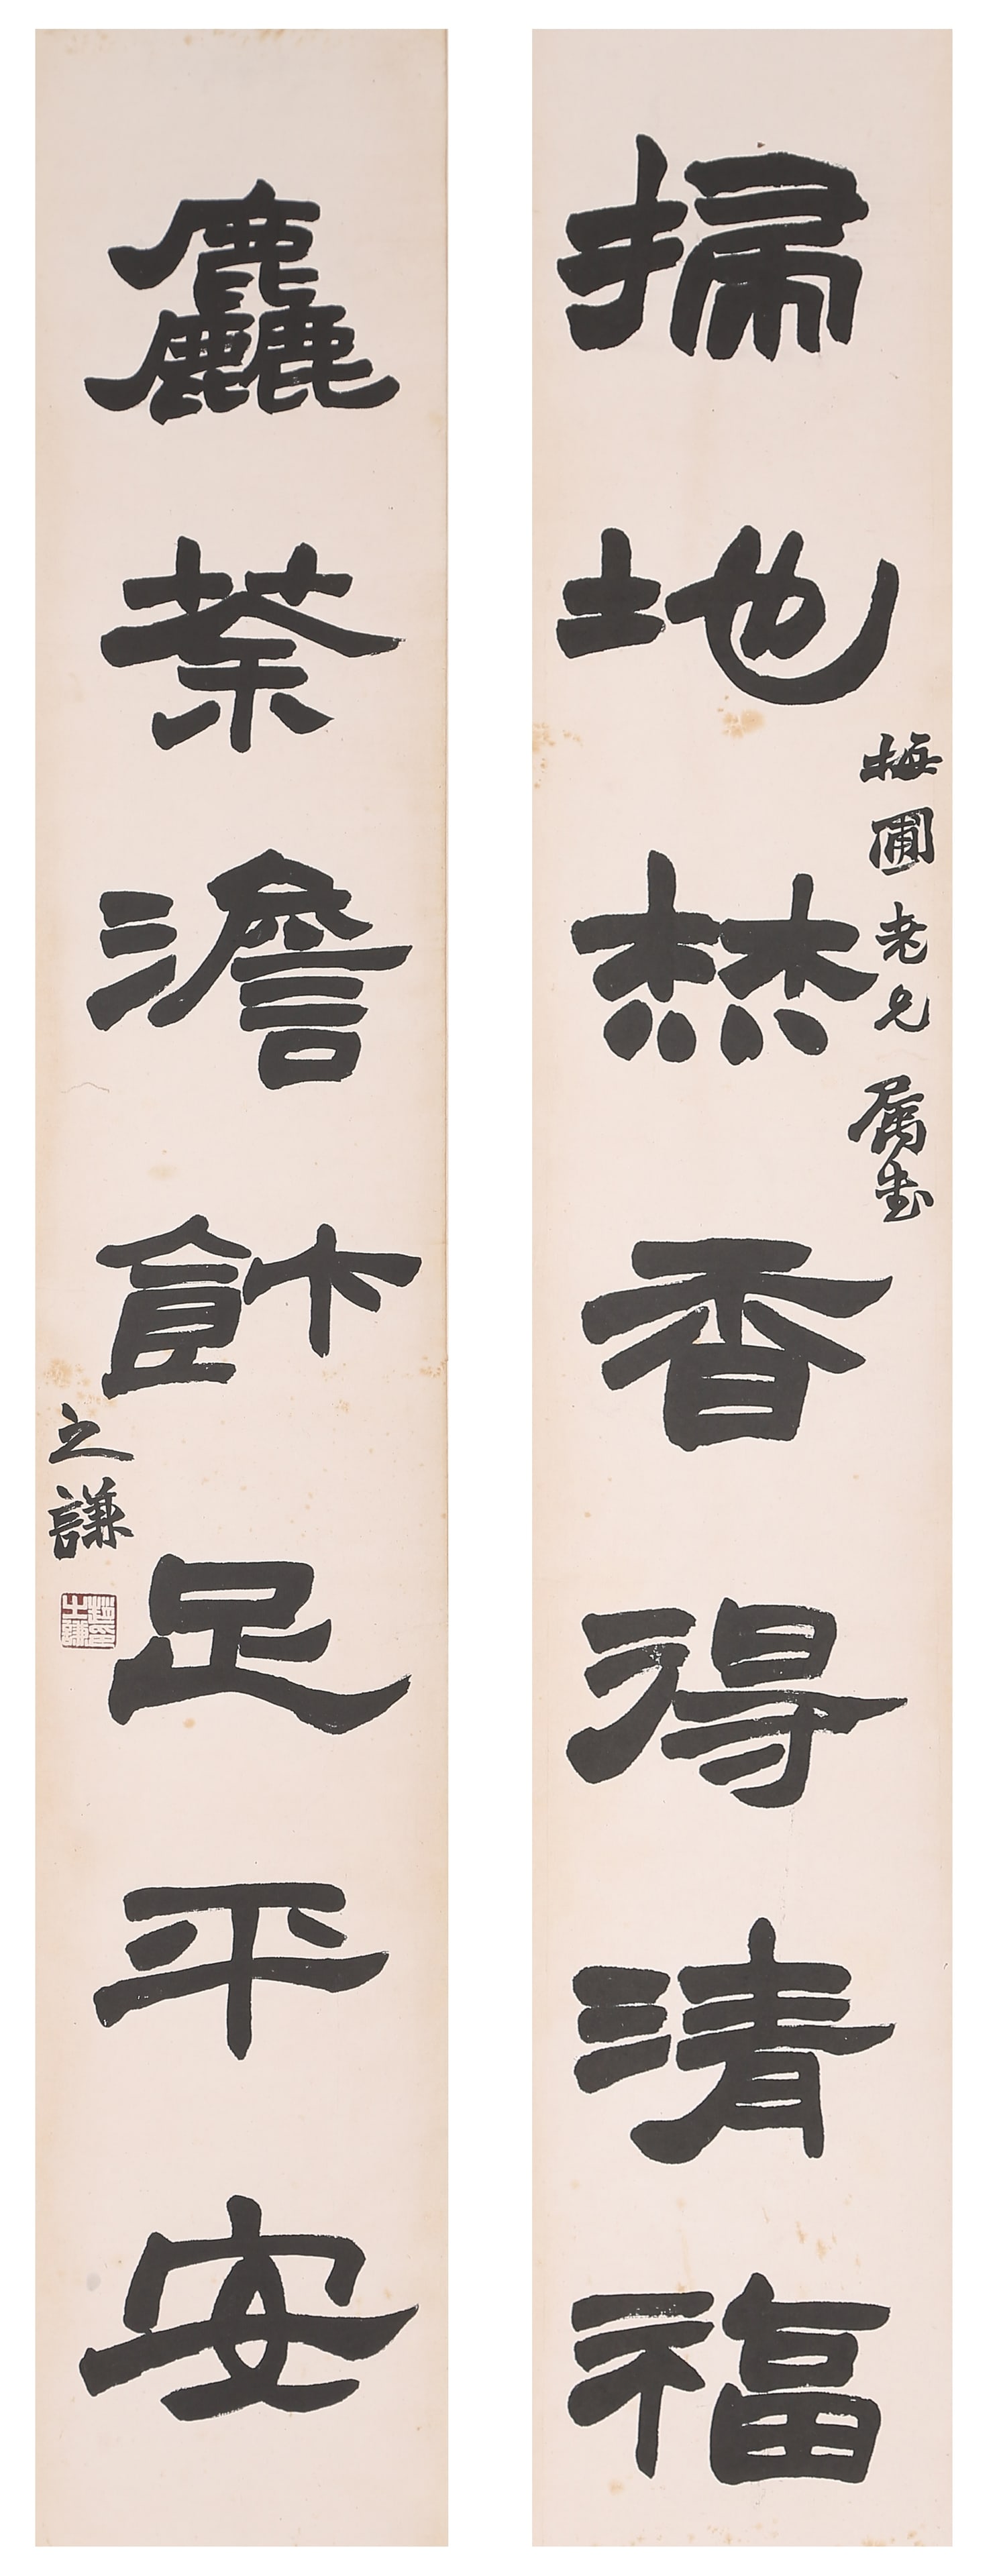 掃地焚香得清福
梅圃老兄属書
麤茶澹飰足平安
之謙
趙印之謙